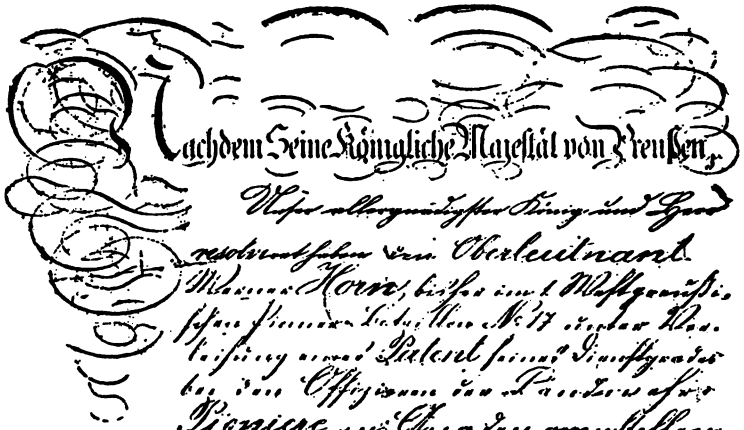 Nachdem Seine Königliche Majestät von Preußen,
Unser allergnädigster König und Herr
resolviret haben den Oberleutnant
Werner Horn, bisher im 1. Westpreußi-
schen Pionier-Bataillon No 17 unter Ver-
leihung eines Patent seines Dienstgrades
bei den Offizieren der Landwehr-
Pioniere in Gnaden anzustellen